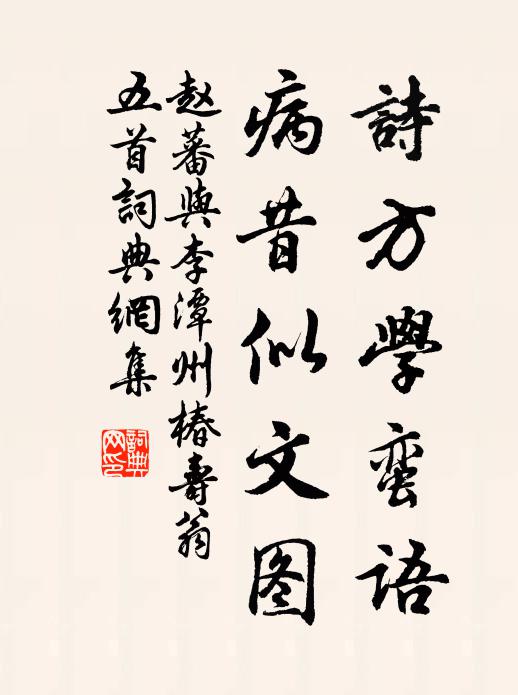 詩方學蛮語
病昔似文图
赵蕃與李潭州椿壽翁
五首詞典網集
詞典
网印